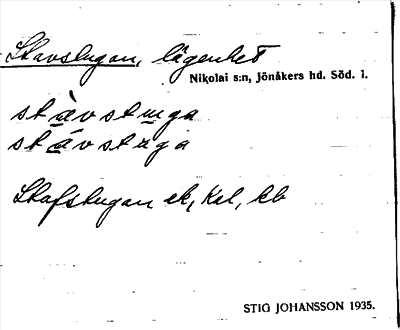 Stavstugan, lägenhet
Nikolai s:n, Jönåkers hd. Söd. l.
stàvstuga
stávstuga
Stafstugan ek, Kal, kb
STIG JOHANSSON 1935.